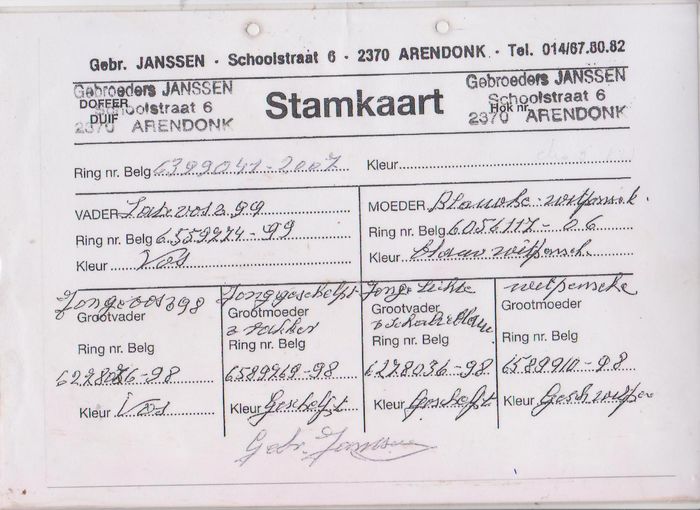 Gebr. JANSSEN - Schoolstraat 6 - 2370 ARENDONK - Tel. 014/67.80.82
Gebroeders JANSSEN
Schoolstraat 6
2370 ARENDONK
DOFFER
DUIF
Stamkaart
Gebroeders JANSSEN
Schoolstraat 6
2370 ARENDONK
Hok nr.
Ring nr. Belg 6399041-2007 Kleur
VADER 99
Ring nr. Belg 6559274-99
Kleur Vos
MOEDER Blauwe witpensk.
Ring nr. Belg 6056117-06
Kleur blauw witpensk
Jonge vos 98
Grootvader
Ring nr. Belg
-98
Kleur Vos
Jong geschelpt
Grootmoeder
Ring nr. Belg
6589969-98
Kleur Geschelpt
Jonge Lichte
Grootvader
Ring nr. Belg
6278036-98
Kleur Geschelpt
witpenske
Grootmoeder
Ring nr. Belg
6589910-98
Kleur Gesch witpen
Gebr. Janssen